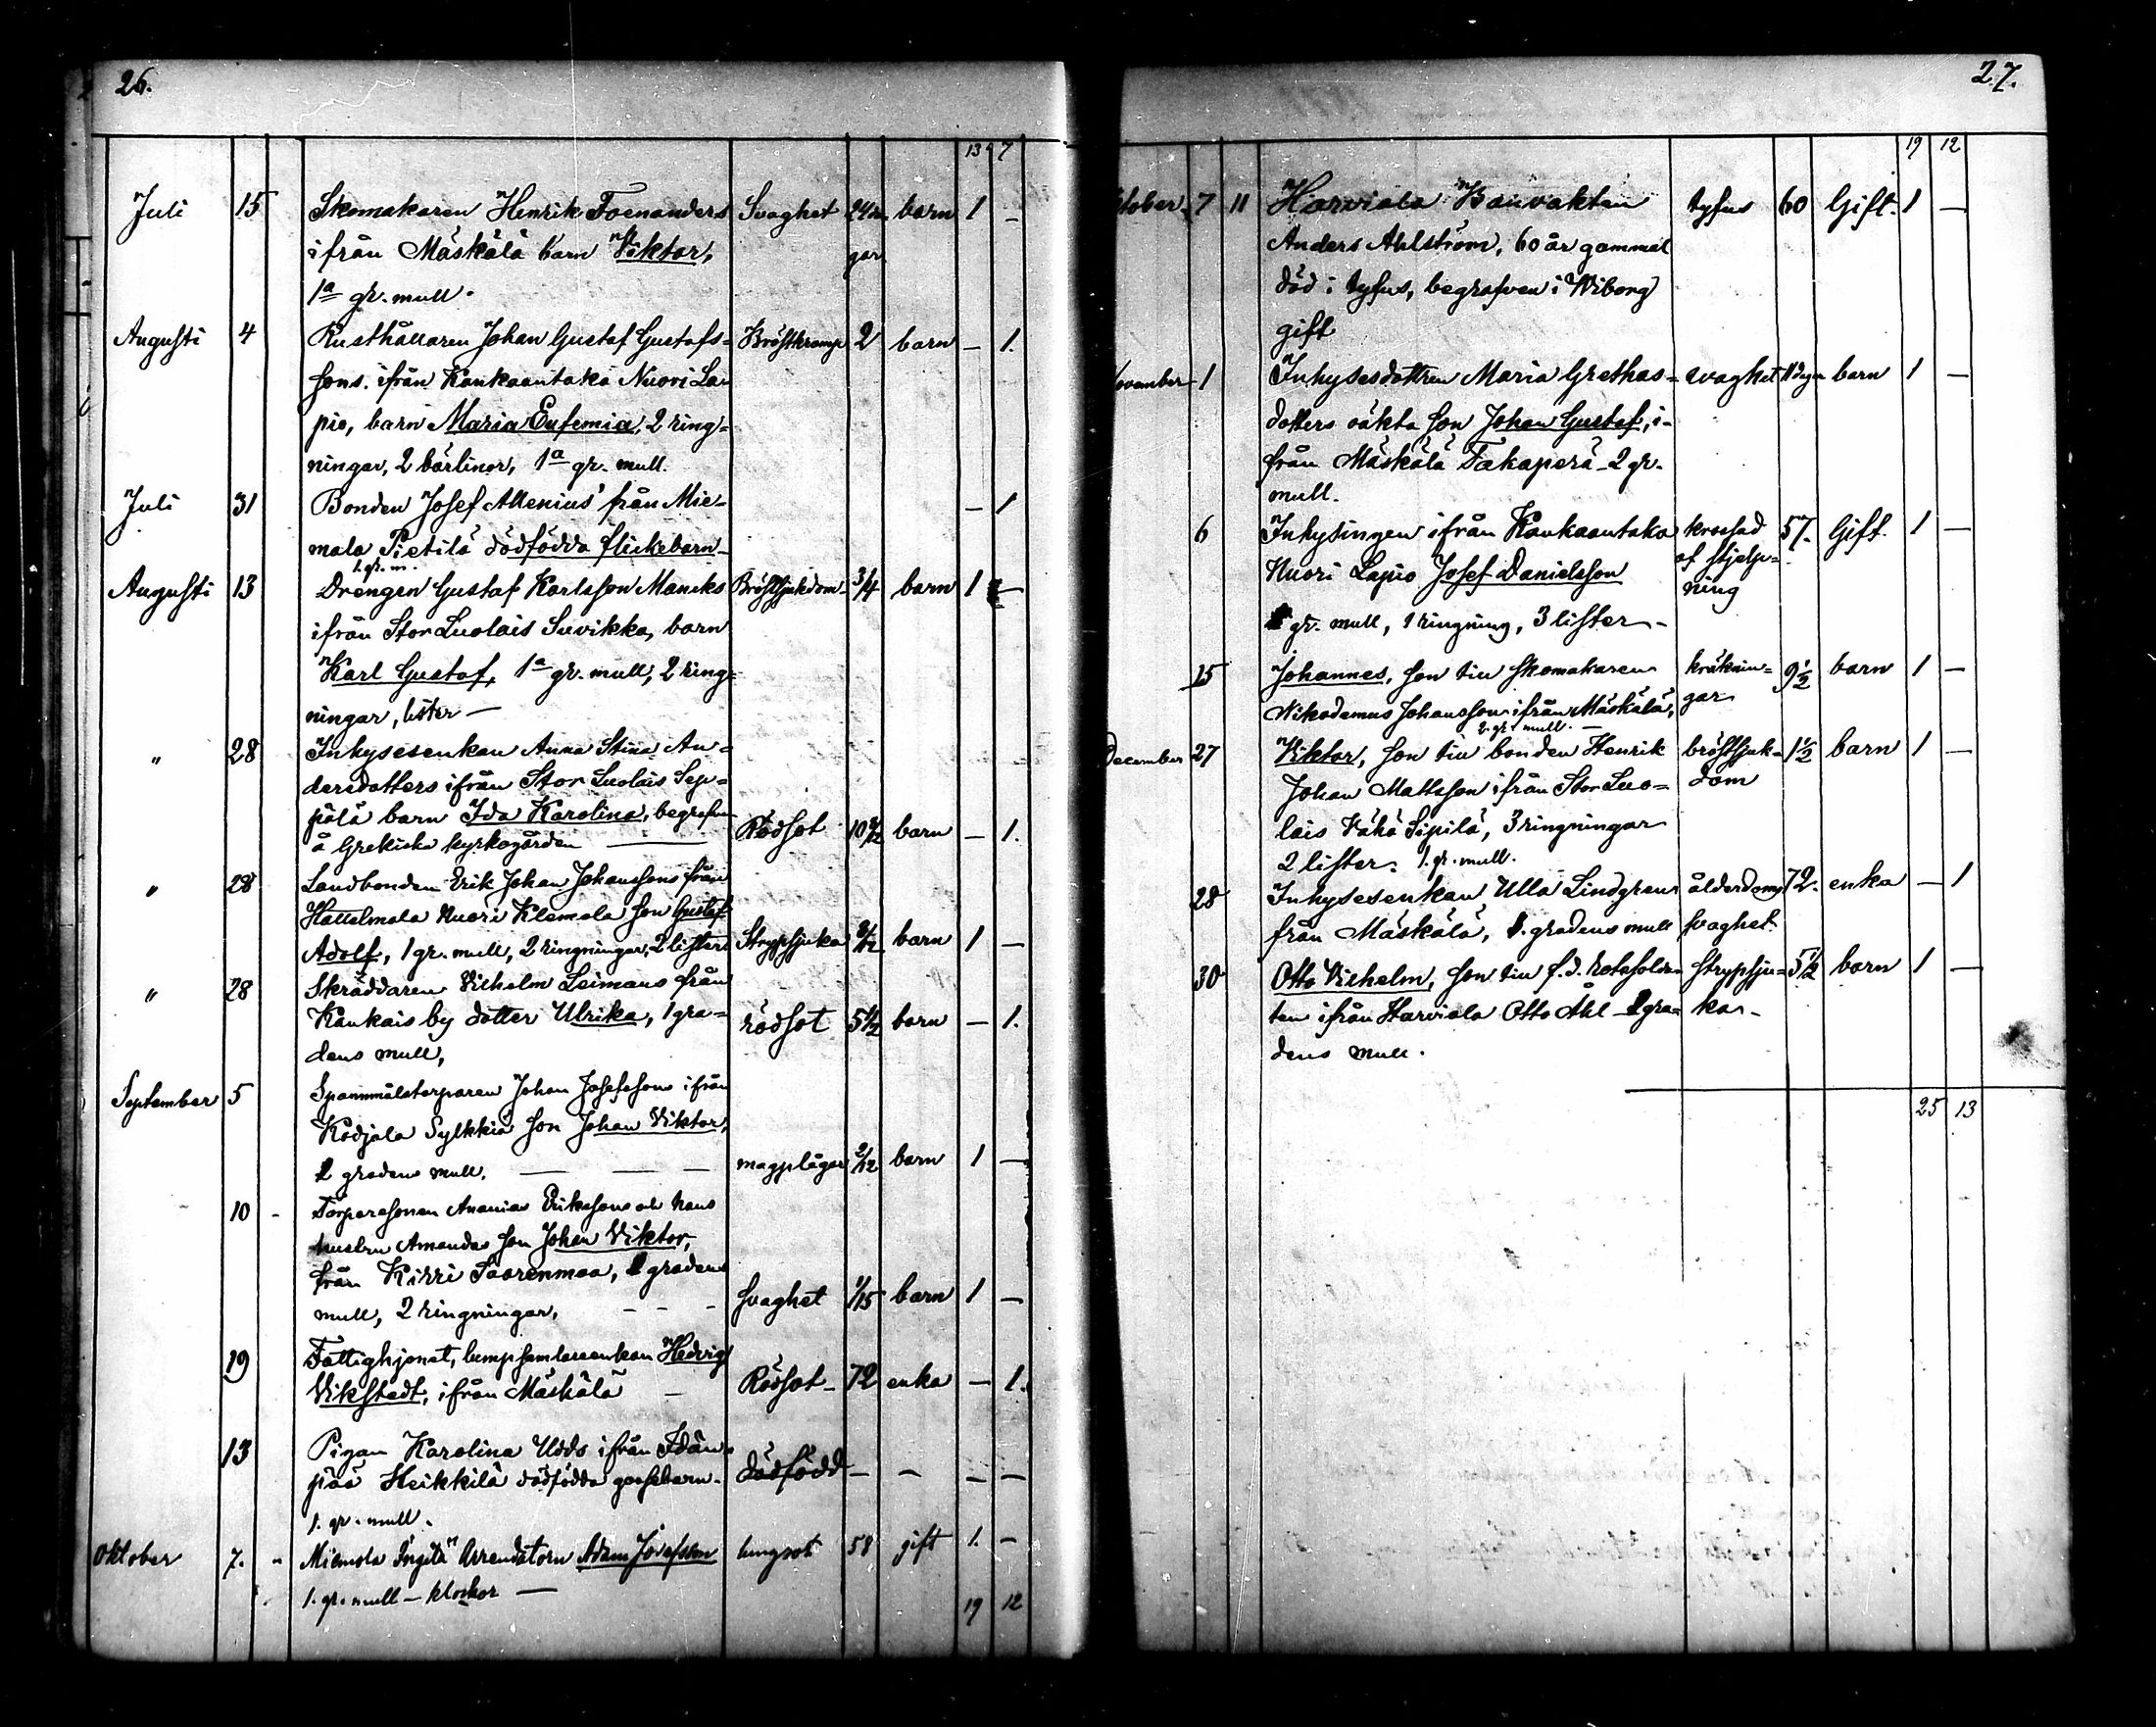 26.
13 7
Juli 15 Skomakaren Henrik Foenanders Svaghet 24 da- barn 1 –
ifrån Mäskälä barn Viktor, gar
1a gr. mull.
Augusti 4 Rusthållaren Johan Gustaf Gustafs- Bröstkramp 2 barn – 1.
sons. ifrån Kankaantaka Nuori La-
pio, barn Maria Eufemia, 2 ring-
ningar, 2 bårlinor, 1a gr. mull.
Juli 31 Bonden Josef Allenius' från Mie- – 1
mala Pietilä dödfödda flickebarn –
1. gr. m.
Augusti 13 Drengen Gustaf Karlsson Mancks Bröstsjukdom 3/4 barn 1 –
ifrån Stor Luolais Suvikka, barn
Karl Gustaf, 1a gr. mull, 2 ring-
ningar, lister –
" 28 Inhysesenkan Anna Stina An-
dersdotters ifrån Stor Luolais Sep-
pälä barn Ida Karolina, begrafven Rödsot barn – 1.
å Grekiska kyrkogården –
" 28 Landbonden Erik Johan Johanssons från
Hattelmala Nuori Klemola son Gustaf
Adolf, 1 gr. mull, 2 ringningar, 2 lister Strypsjuka barn 1 –
" 28 Skräddaren Vilhelm Leimans från
Kankais by dotter Ulrika, 1 gra- rödsot 5 1/2 barn – 1.
dens mull,
September 5 Spannmålstorparen Johan Josefssons ifrån
Kodjala Sylkkiä son Johan Viktor,
2 gradens mull. – – – magplågor 2/12 barn 1 –
10 - Torparesonen Ananias Erikssons och hans
hustru Amandas son Johan Viktor,
från Kirri Saarenmaa, 2 gradens
mull, 2 ringningar, – – – svaghet 1/15 barn 1 –
19 Fattighjonet, lumpsamlareenkan Hedvig
Vikstedt, ifrån Mäskälä – Rödsot – 72 enka – 1.
13 Pigan Karolina Udds ifrån Idän-
pää Heikkilä dödfödda gossebarn. dödfödd – – – –
1. gr. mull.
Oktober 7. " Miemola Ingilä" Arrendatorn Adam Josefsson lungsot 58 gift 1. –
1. gr. mull – klockor –
19 12
27.
19 12
ktober 7 11 Harviala Banvakten tyfus 60 Gift. 1 –
Anders Ahlström, 60 år gammal
död i tyfus, begrafven i Wiborg
gift
November 1 Inhysesdottren Maria Grethas- svaghet 11 dagar barn 1 –
dotters oäkta son Johan Gustaf, i-
från Mäskälä Takaperä – 2 gr.
mull.
6 Inhysingen ifrån Kankaantaka krossad 57. Gift. 1 –
Nuori Lapio Josef Danielsson af stjelp-
ning
gr. mull, 1 ringning, 3 lister –
15 Johannes, son till skomakaren kräknin- 9 1/2 barn 1 –
Nikodemus Johansson ifrån Mäskälä, gar
2. gr. mull. –
December 27 Viktor, son till bonden Henrik bröstsjuk- 1 1/2 barn 1 –
Johan Mattsson ifrån Stor Luo- dom
lais Vähä Sipilä, 3 ringningar
2 lister. 1. gr. mull.
28 Inhysesenkan Ulla Lindgren ålderdoms 72. enka – 1
från Mäskälä, 1. gradens mull svaghet
30 Otto Vilhelm, son till f.d. Rotesolda- strypsju- 5 1/2 barn 1 –
ten ifrån Harviala Otto Ahl – gra- kar –
dens mull.
25 13